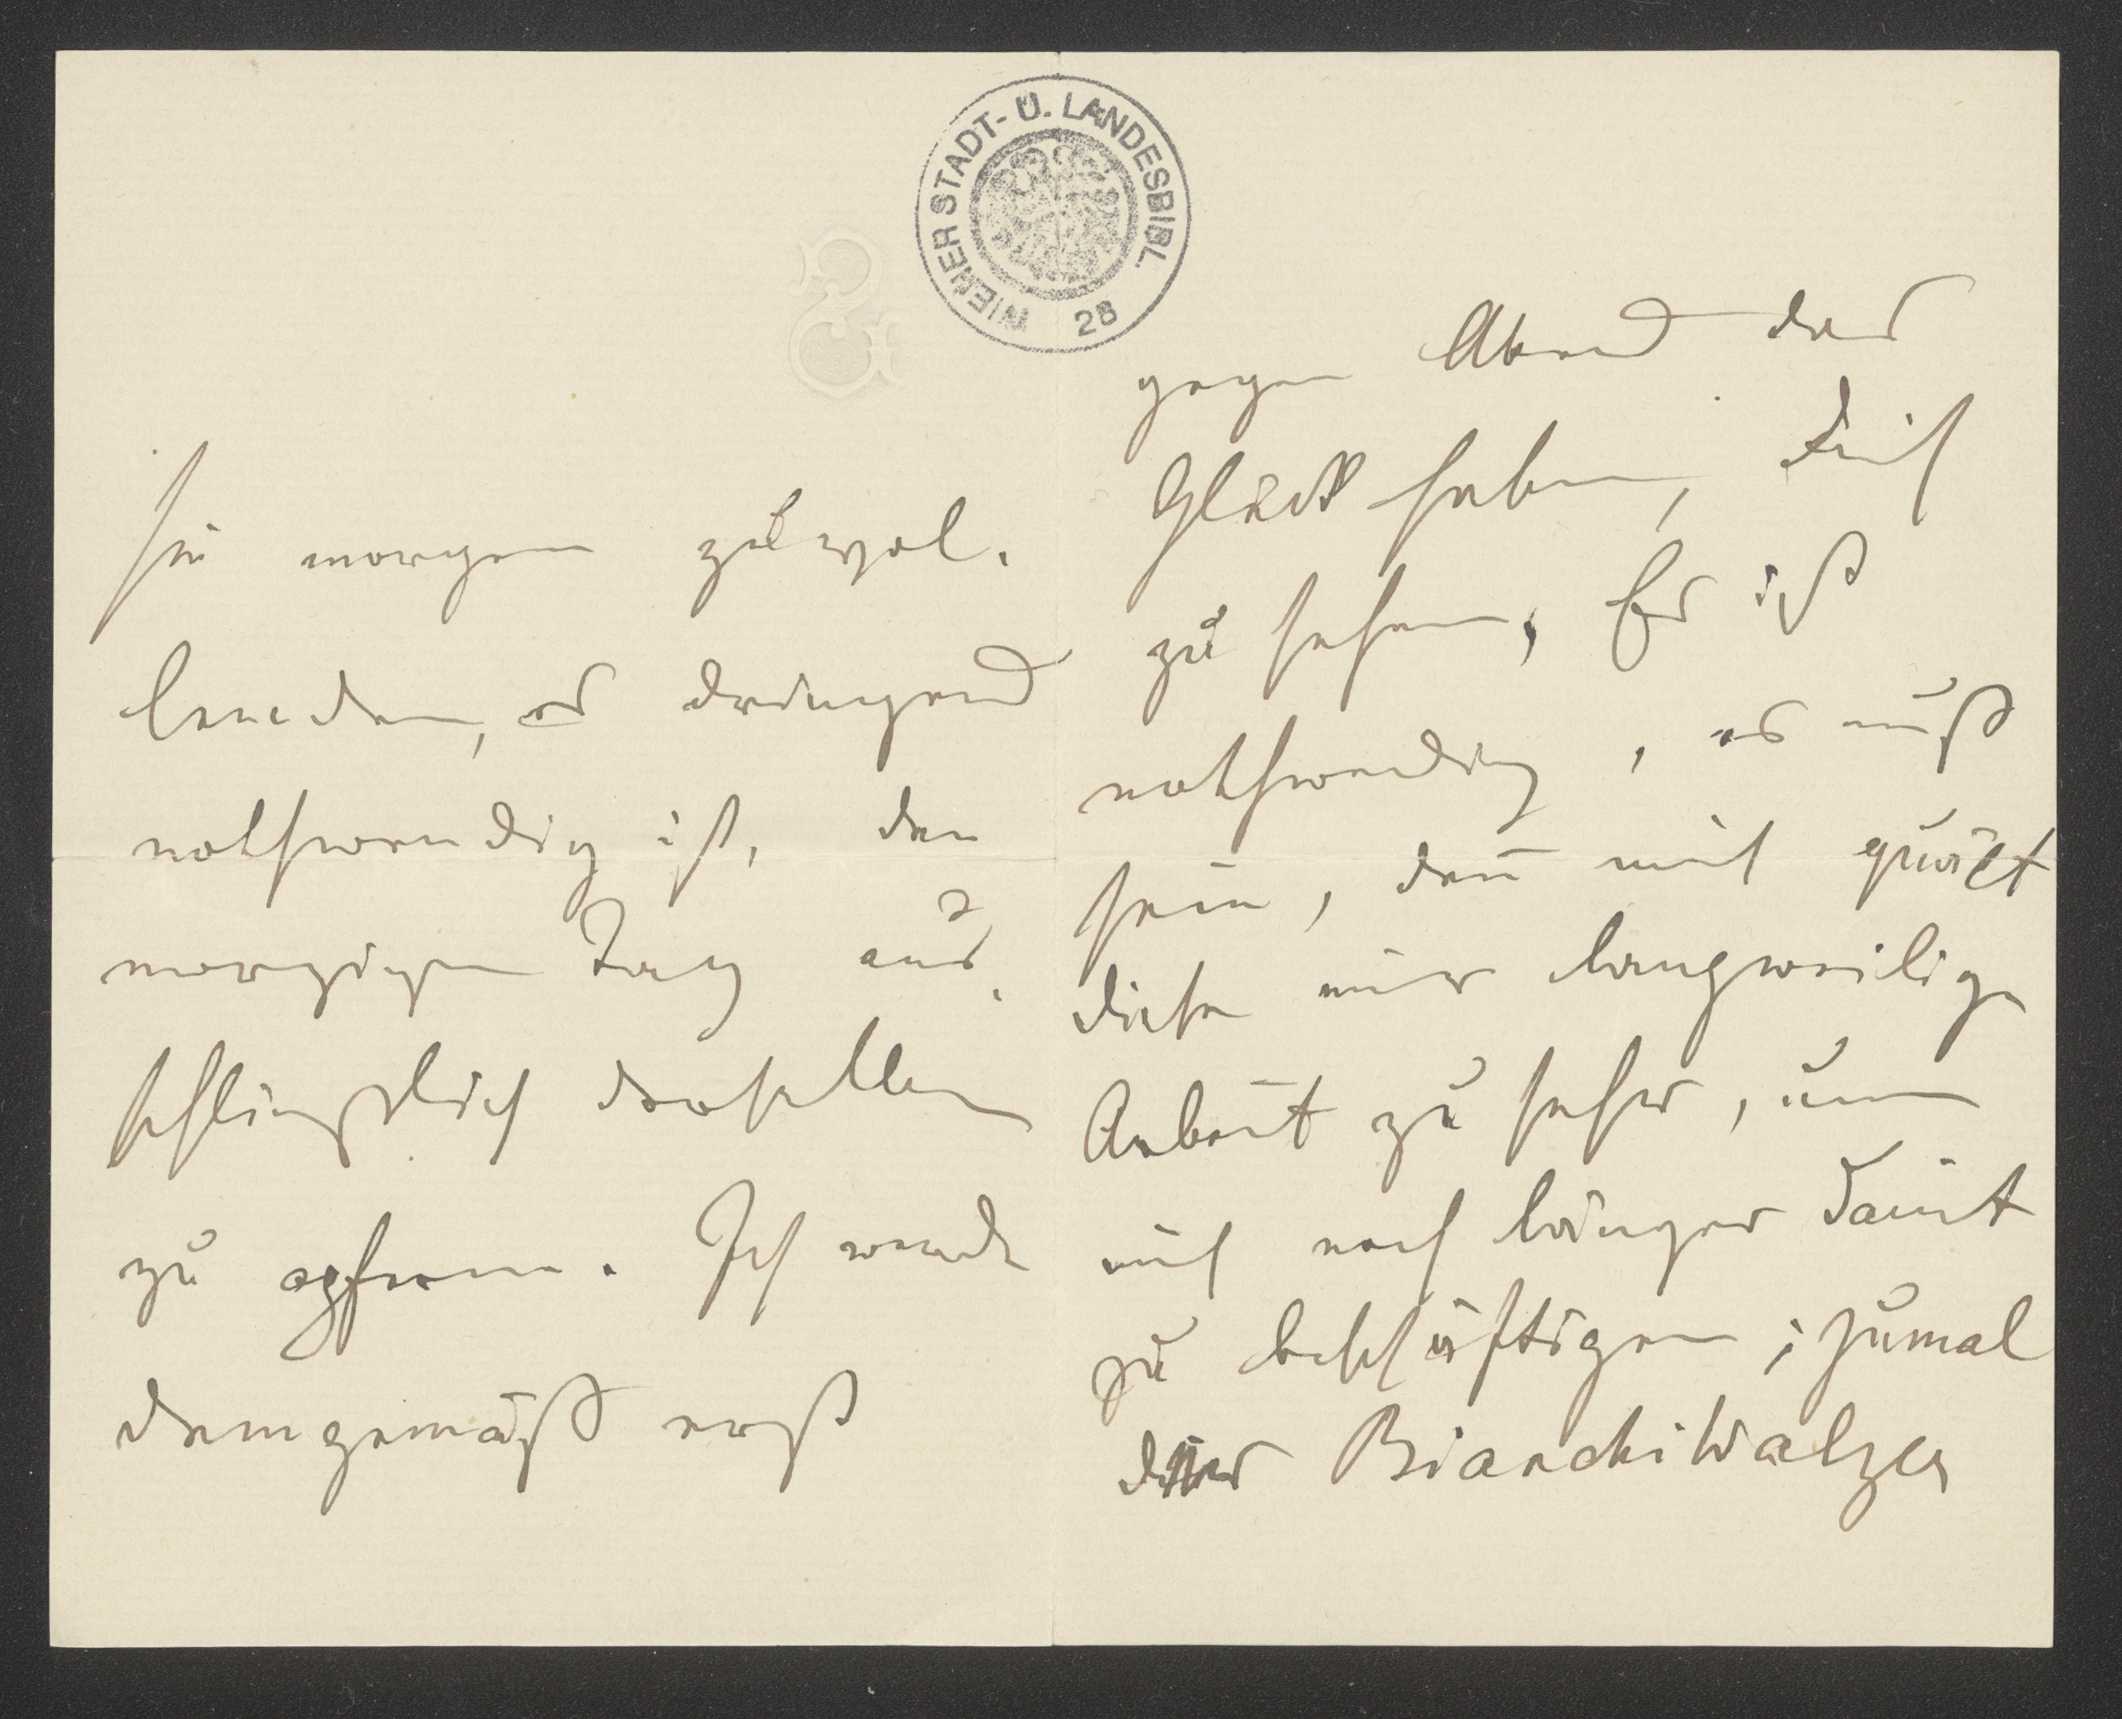 WIENER STADT- U. LANDESBIBL.
28
sie morgen zu vol-
lenden, es dringend
nothwendig ist, den
morgigen Tag aus-
schließlich derselben
zu opfern. Ich werde
demgemäß erst
gegen Abend das
Glück haben, Dich
zu sehen, Es ist
nothwendig, es muß
sein, den̄ mich quält
diese mir langweilige
Arbeit zu sehr, um
mich noch länger damit
zu beschäftigen; zumal
BianchiWalzer